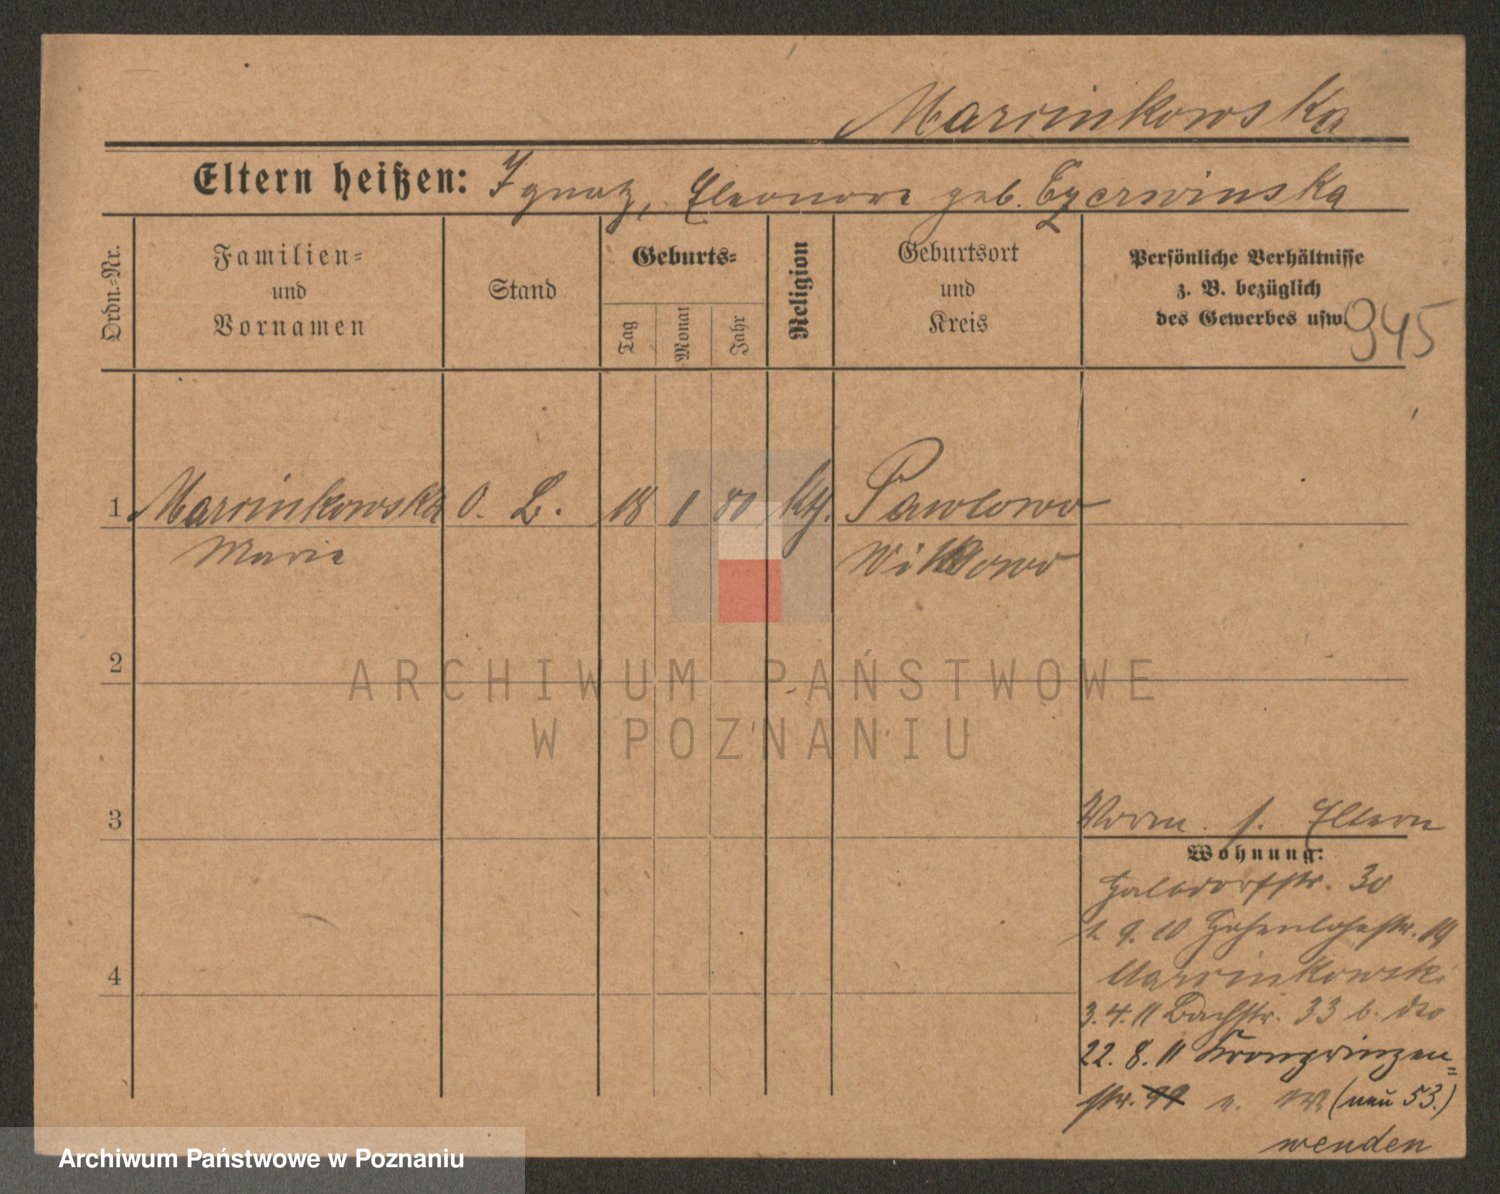 Marcinkowska
Eltern heißen: Ignatz, Eleonore geb. Czerwinska
Ordn.-Nr.
Familien-
und
Vornamen
Stand
Geburts-
Tag
Monat
Jahr
Religion
Geburtsort
und
Kreis
Persönliche Verhältnisse
z. B. bezüglich
des Gewerbes usw.
945
1 Marcinkowska O. L. 18 1 80 kth. Pawlowo
Marie Witkowo
2
ARCHIWUM PAŃSTWOWE
W POZNANIU
3
Vorm. s. Eltern
Wohnung:
Halbdorfstr. 30
1. 9. 10 Hohenlohestr. 14
Marcinkowsk.
4
3. 4. 11 Bachstr. 33 b. dto
22. 8. 11 Kronprinzen=
str. (neu 53.)
wenden
Archiwum Państwowe w Poznaniu